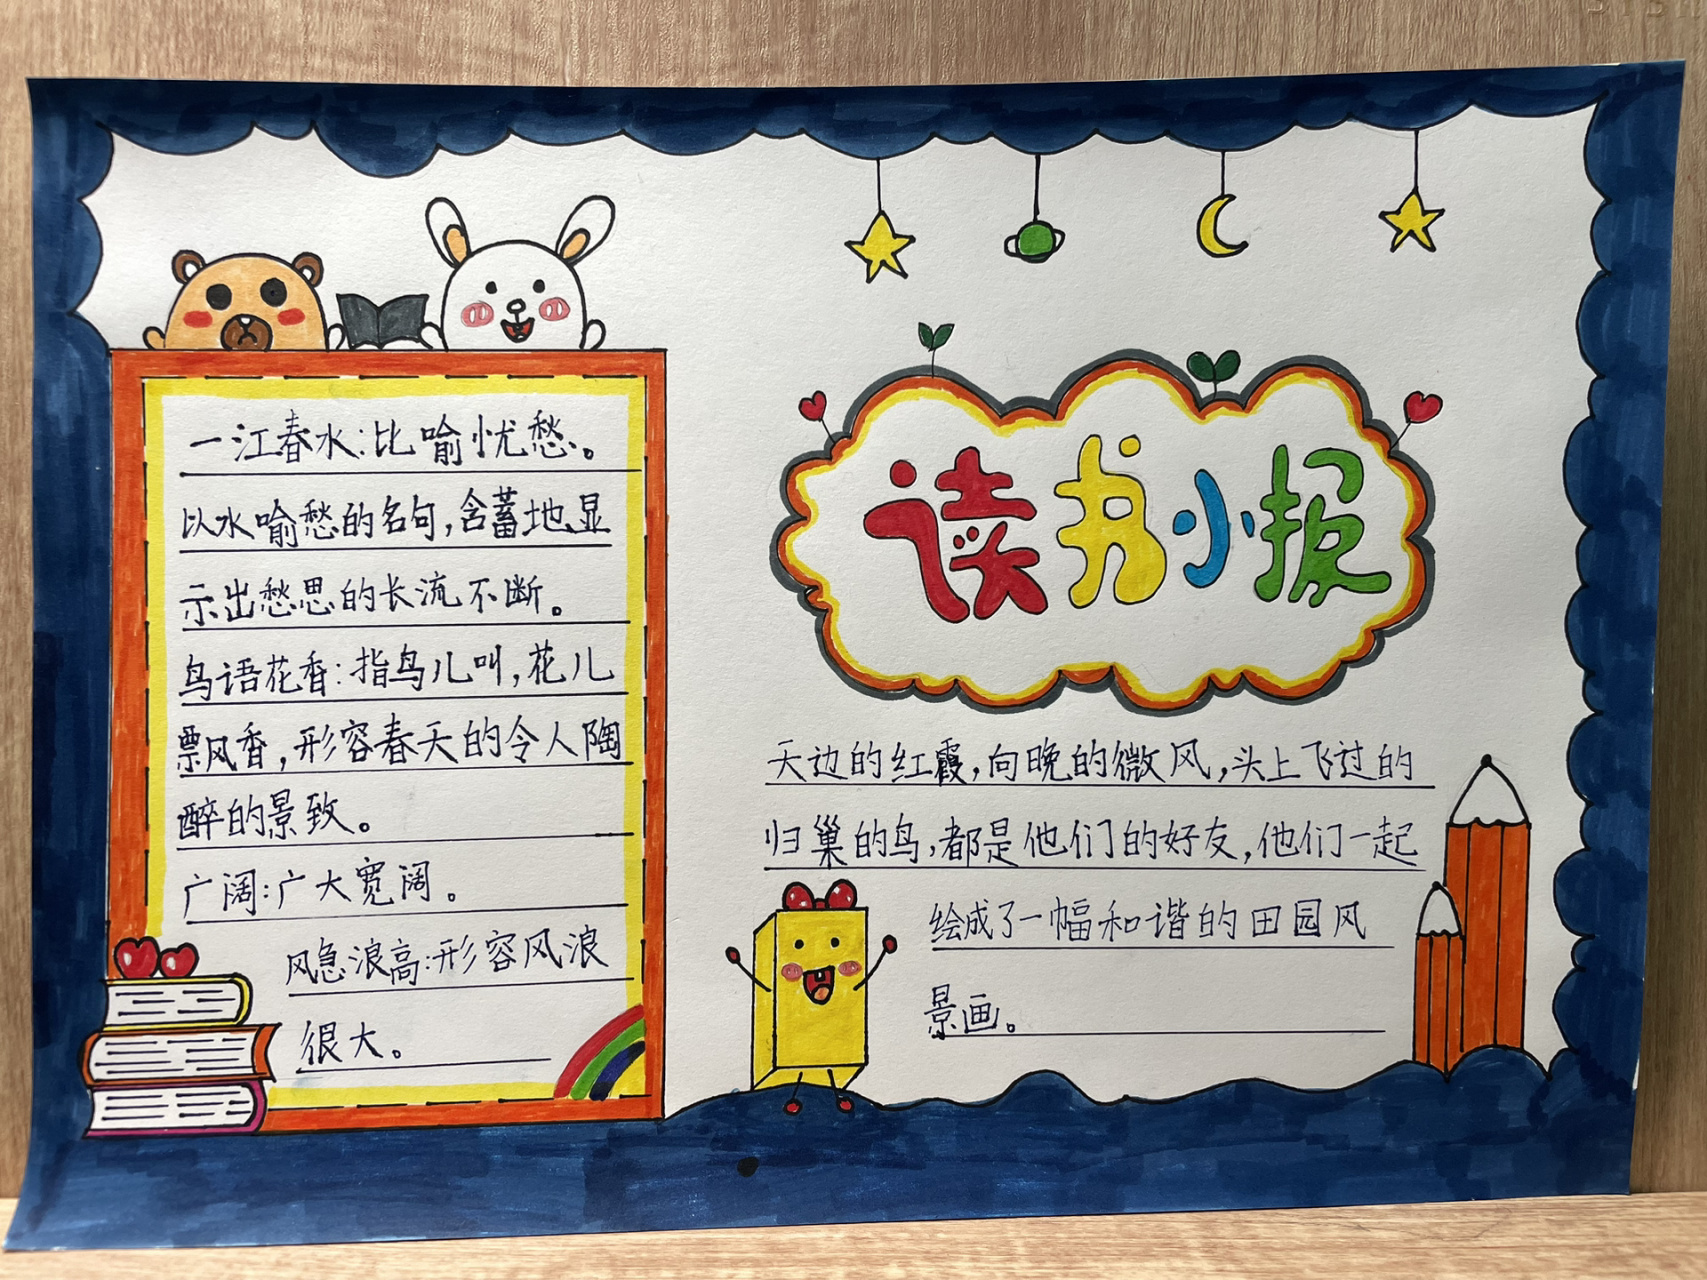 一江春水:比喻忧愁。
以水喻愁的名句,含蓄地显
示出愁思的长流不断。
鸟语花香:指鸟儿叫,花儿
飘风香,形容春天的令人陶
醉的景致。
广阔:广大宽阔。
风急浪高:形容风浪
很大。
读书小报
天边的红霞,向晚的微风,头上飞过的
归巢的鸟,都是他们的好友,他们一起
绘成了一幅和谐的田园风
景画。